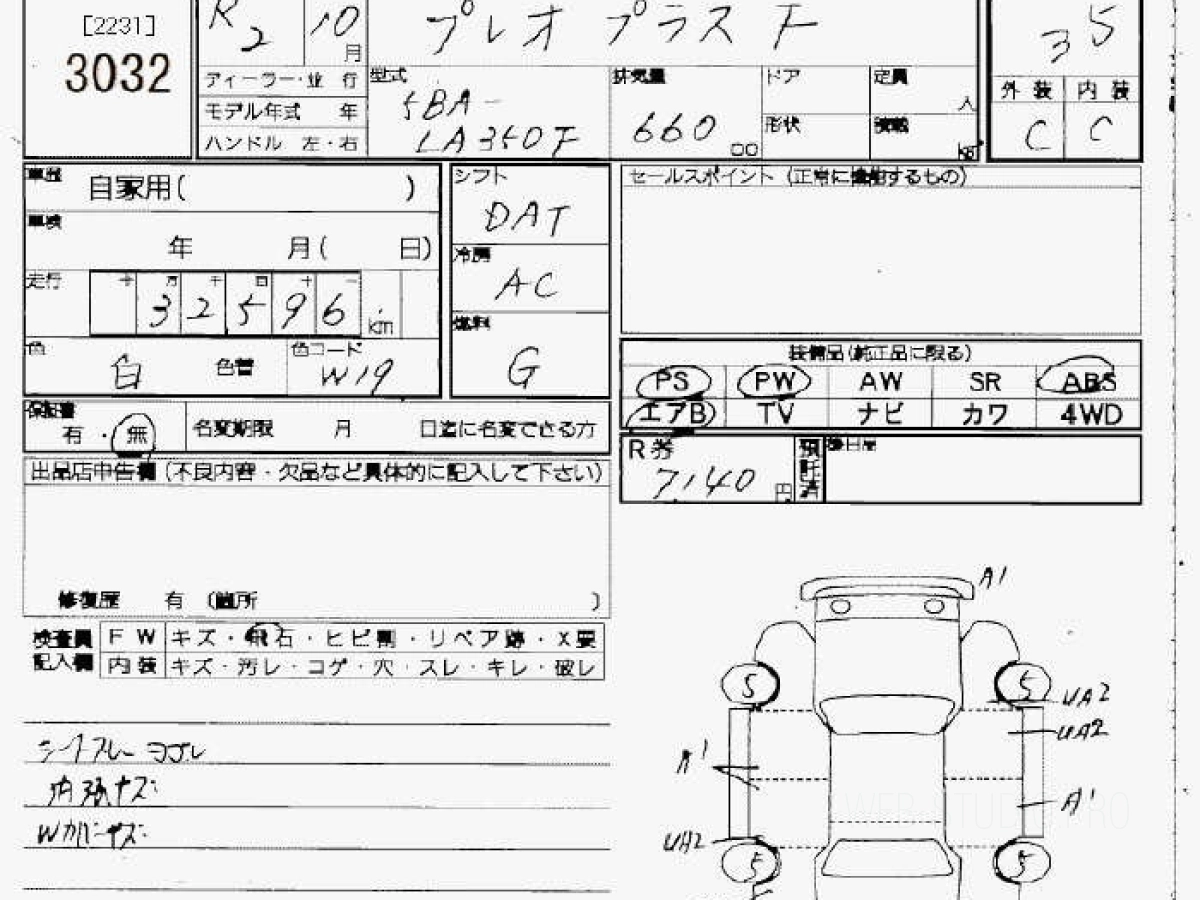 [2231]
3032
R2 10月
プレオ プラス F
35
ディーラー・並 行
モデル年式 年
ハンドル 左・右
型式
5BA-
LA350F
排気量
660
cc
ドア
形状
定員
人
積載
kg
外 装 内 装
C C
車歴
自家用( )
車検
年 月( 日)
走行
十 万 千 百 十 一
32596 km
色
白
色替
色コード
W19
シフト
DAT
冷房
AC
燃料
G
セールスポイント (正常に機能するもの)
装備品(純正品に限る)
PS PW AW SR ABS
エアB TV ナビ カワ 4WD
保証書
有 ・ 無
名変期限 月 日迄に名変できる方
R券
7,140 円
預託済
後日品
出品店申告欄(不良内容・欠品など具体的に記入して下さい)
修復歴 有 (箇所 )
検査員記入欄
FW キズ・飛石・ヒビ割・リペア跡・X要
内装 キズ・汚レ・コゲ・穴・スレ・キレ・破レ
シートフレームヨゴレ
内張キズ
Wカバーキズ
A1
5 5
UA2
UA2
A1
A1
UA2
5 5
WEB STUDIO PRO